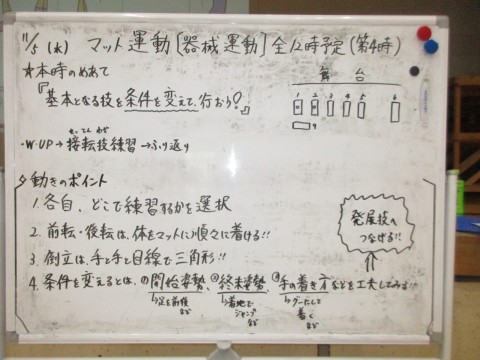 11/5(水) マット運動〔器械運動〕全12時予定(第4時)
☆本時のめあて
舞台
『基本となる技を条件を変えて、行おう?』
1 2 3 4 5 6
・W-UP→接転技練習→ふり返り
せってんわざ
◇動きのポイント
1. 各自、どこで練習するかを選択
2. 前転・後転は、体をマットに順々に着ける!!
3. 倒立は、手と手と目線で三角形!!
4. 条件を変えるとは、①開始姿勢、②終末姿勢、③手の着き方などを工夫してみる!!
↳足を前後など
↳着地でジャンプなど
↳グーにして着くなど
発展技へつなげる!!